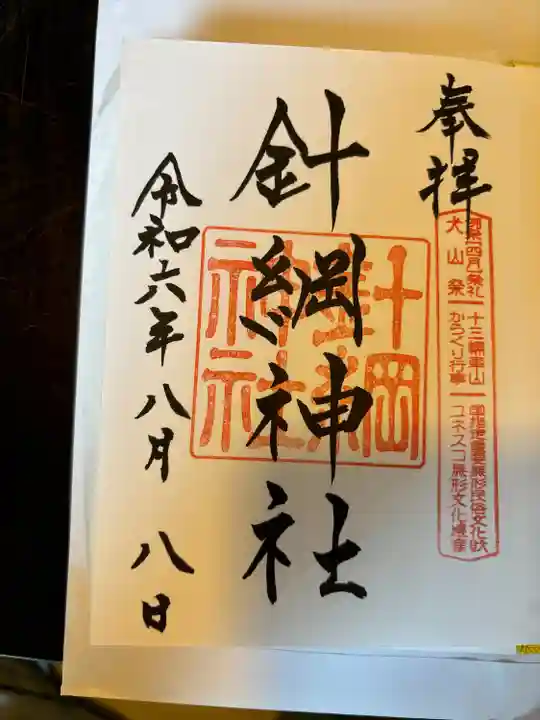 奉拝
例祭(四月)祭礼
犬山祭
十三輌車山
からくり行事
国指定重要無形民俗文化財
ユネスコ無形文化遺産
針綱神社
針綱神社
令和六年八月八日